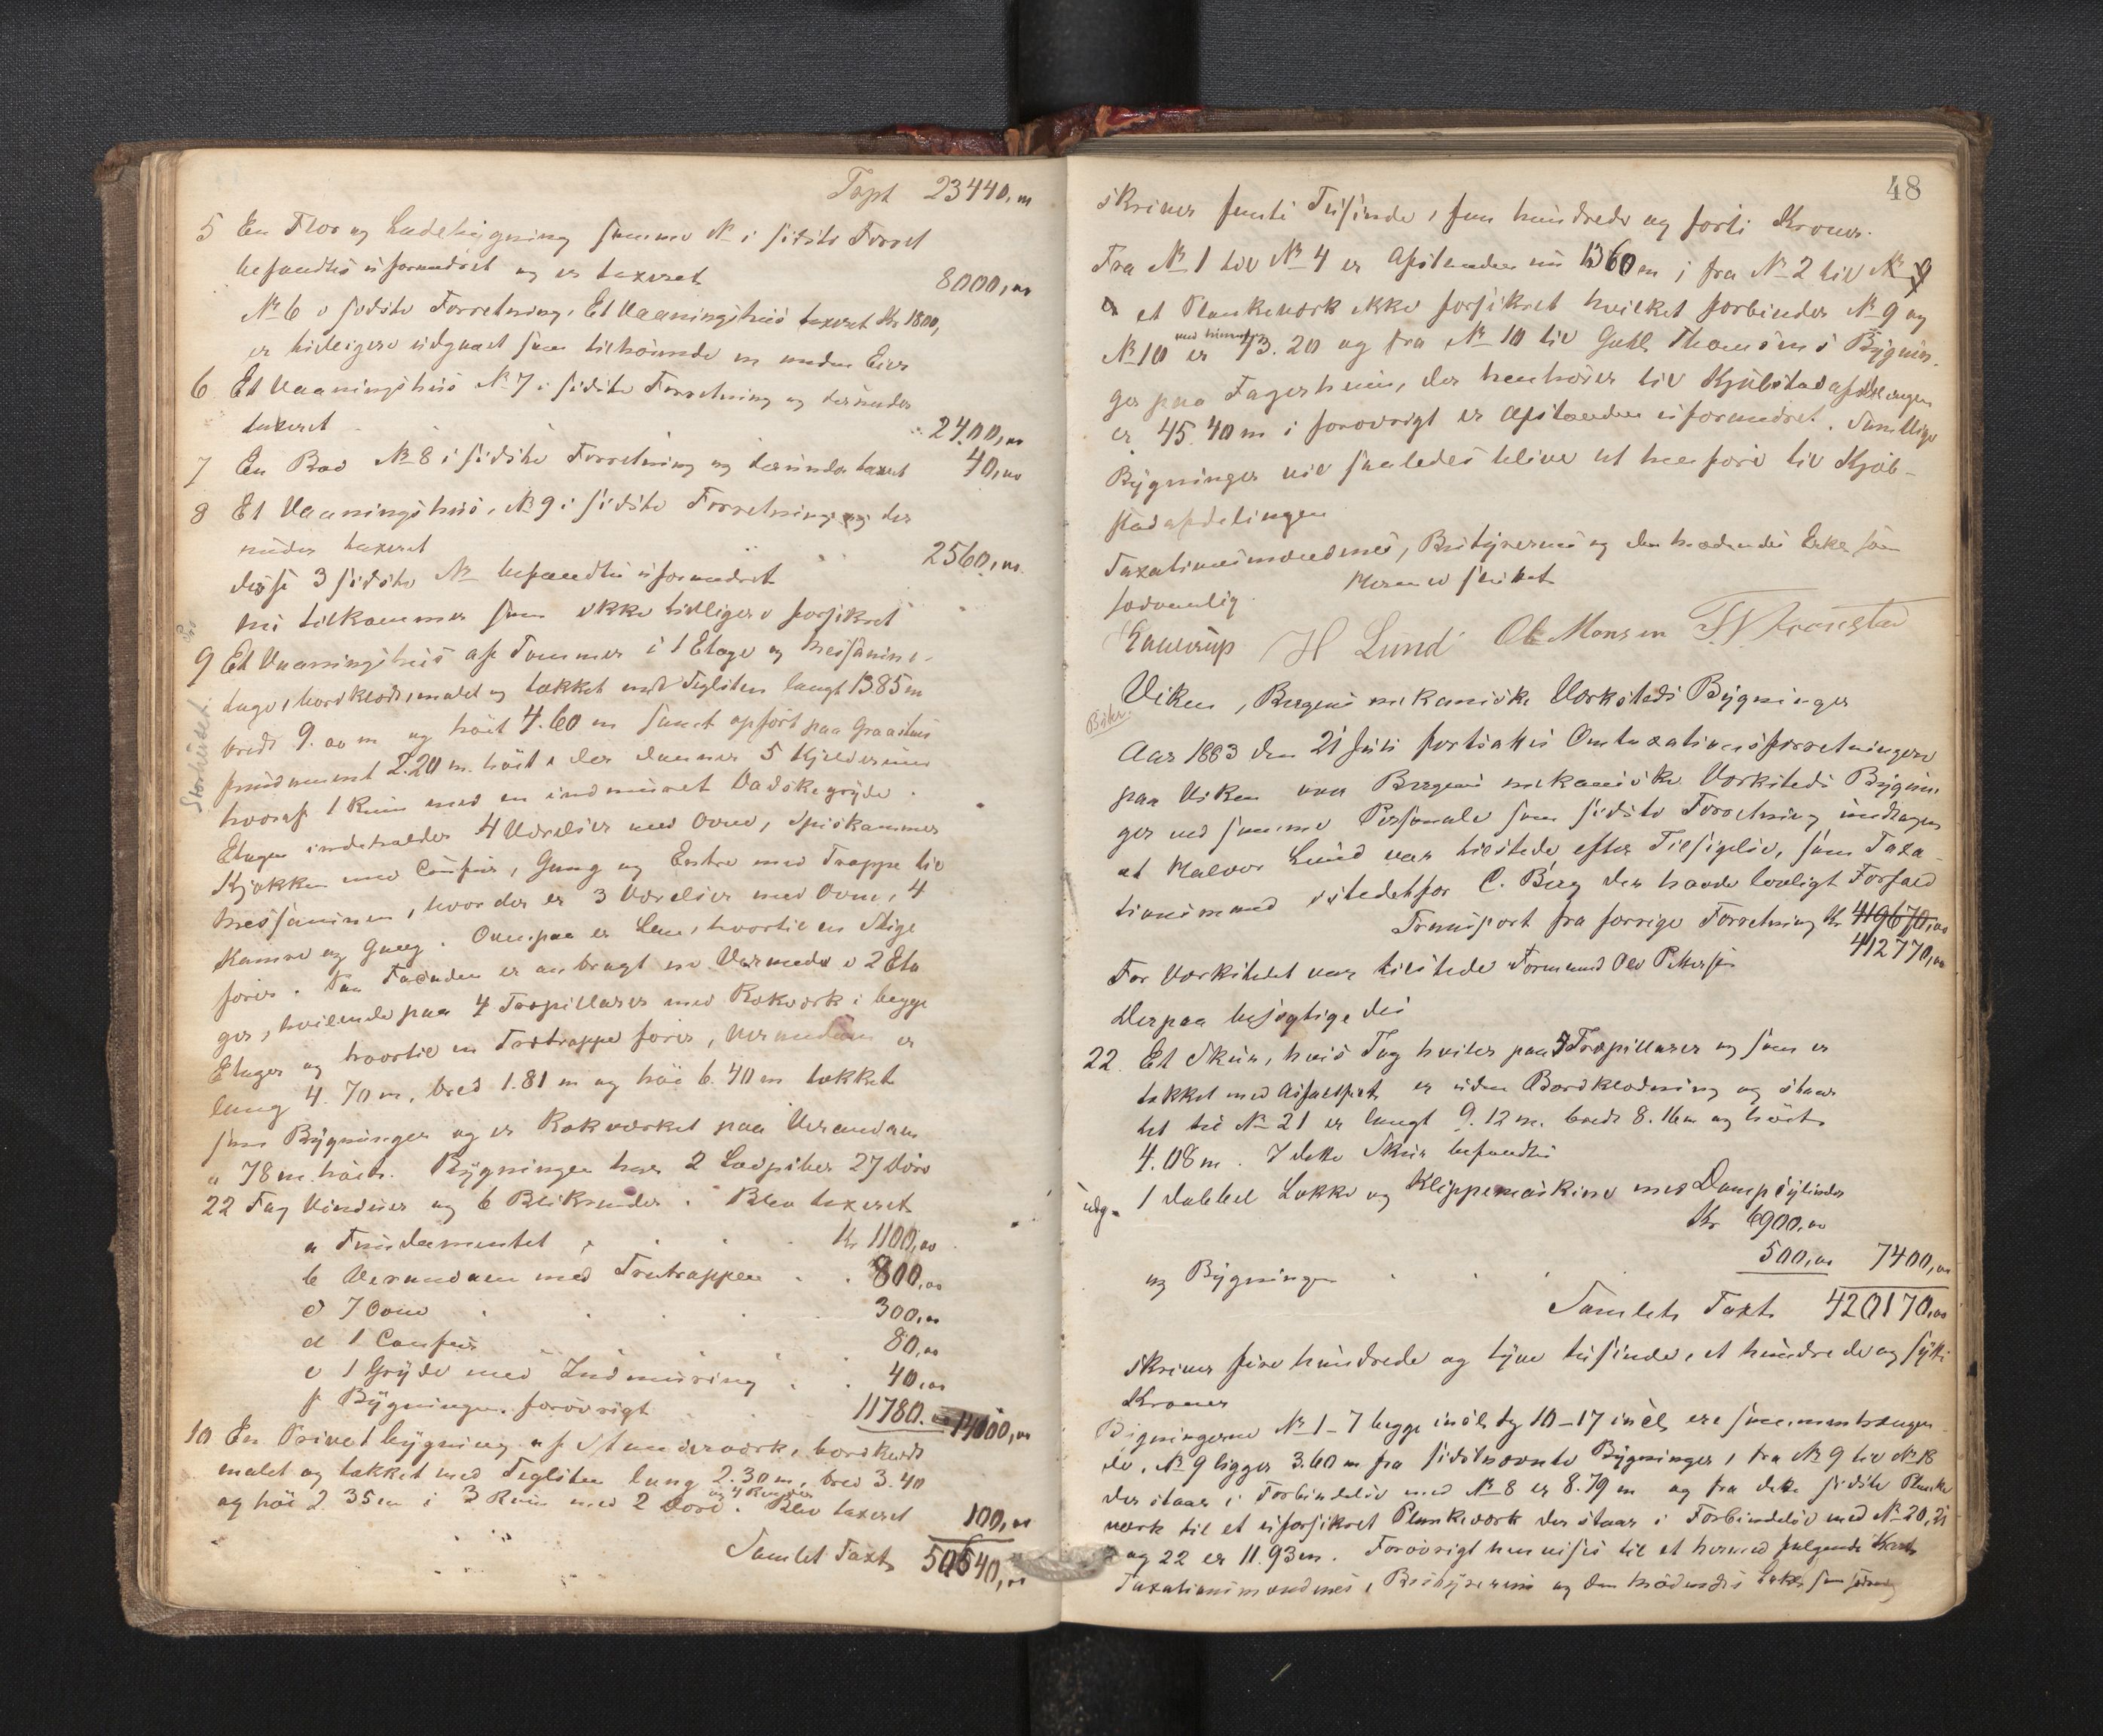 Taxt 23440,00
5 En Flor og Ladebygning samme № i sidste Forret
befandtes uforandret og er taxeret 8000,00
№ 6 i sidste Forretning, Et Vaaningshus taxeret Kr 1800,
er tidligere udgaaet som tilhørende en anden Eier
6 Et Vaaningshus № 7 i sidste Forretning og derunder
taxeret 2400,00
7 En Bod № 8 i sidste Forretning og derunder taxeret 40,00
8 Et Vaaningshus, № 9 i sidste Forretning og der
under taxeret 2560,00
disse 3 sidste № befandtes uforandret
Nu tilkommer som ikke tidligere forsikret
Storhuset
9 Et Vaaningshus af Tømmer i 1 Etage og Messanine-
tage, bordklædt, malet og tækket med Teglsten langt 13.85 m
bredt 9.00 m og høit 4.60 m samt opført paa Graastens
fundament 2.20 m. høit, der danner 5 Kjelderrum
hvoraf 1 Rum med en indmuret Vadskegryde.
Etagen indeholder 4 Værelser med Ovne, Spiskammer
Kjøkken med Comfur, Gang og Entre med Trappe til
Messaninen, hvor der er 3 Værelser med Ovne, 4
Kamre og Gang. Ovenpaa er Lem, hvortil en Stige
fører. Paa Facaden er anbragt en Veranda i 2 Eta
ger, hvilende paa 4 Træpillarer med Rækværk i begge
Etager og hvortil en Trætrappe fører, Verandaen er
lang 4.70 m, bred 1.81 m og høi 6.40 m tækket
som Bygningen og er Rækværket paa Verandaen
" 78 m. høit. Bygningen har 2 Lodpiber 27 Døre
22 Fag Vinduer og 6 Blikrender. Blev taxeret
a Fundamentet Kr 1100,00
b Verandaen med Trætrappen 800,00
c 7 Ovne 300,00
d 1 Comfur 80,00
e 1 Gryde med Indmuring 40,00
f Bygningen forøvrigt 11780.00 14000,00
10 En Privetbygning af Stænderværk, bordklædt
malet og tækket med Teglsten lang 2.30 m, bred 3.40
og høi 2.35 m i 3 Rum med 2 Døre og 4 Render. Blev taxeret 100,00
Samlet Taxt 50540,00
48
skriver femti Tusinde, fem hundrede og forti Kroner.
Fra № 1 til № 4 er Afstanden nu 1360 m; fra № 2 til № 9
er et Plankeværk ikke forsikret hvilket forbinder № 9 og
№ 10 med hinanden er 73.20 og fra № 10 til Gabl. Thomsens Bygnin-
ger paa Fagerheim, der henhører til Kjøbstadafdelingen
er 45.40 m i forøvrigt er Afstanden uforandret. Samtlige
Bygninger vil saaledes blive at henføre til Kjøb-
stadafdelingen
Taxationsmændenes, Bestyrerens og den mødendes Eeker som
sædvanlig. Mere ei passeret
H Lund Ole Monsen
Viken, Bergens mekaniske Værksteds Bygninger
Aar 1883 den 21 Juli fortsattes Omtaxationsforretningen
paa Viken over Bergens mekaniske Værksteds Bygnin
ger ved samme Personale som sidste Forretning undtagen
at Halvor Lund var tilstede efter Tilsigelse, som Taxa-
tionsmand istedetfor C. Berg der havde lovligt Forfald
Transport fra forrige Forretning Kr 419670,00
412770,00
For Værkstedet var tilstede Formand Ole Pettersen
Derpaa besigtigedes
22. Et Skur, hvis Tag hviler paa 3 Træpillarer og som er
tækket med Asfaltpap er uden Bordklædning og staar
tæt til № 21 er langt 9.12 m. bredt 8.16 m og høit
4.08 m. I dette Skur befandtes
udg. 1 dobbel Lokke og Klippemaskine med Dampcylinder
Kr 6900,00
og Bygningen 500,00 7400,00
Samlet Taxt 420170,00
skriver fire hundrede og tyve tusinde, et hundrede og sytti
Kroner
Bygningerne № 1–7 begge incl. og 10–17 incl. ere sammenhængen
de, № 9 ligger 3.60 m fra sidstnævnte Bygninger, fra № 9 til № 18
der staar i Forbindelse med № 8 er 8.79 m og fra dette sidste Planke
værk til et uforsikret Plankeværk der staar i Forbindelse med № 20, 21
og 22 er 11.93 m. Forøvrigt henvises til et hermed følgende Kart
Taxationsmændenes, Bestyrerens og den mødendes Eeker som sædvanlig